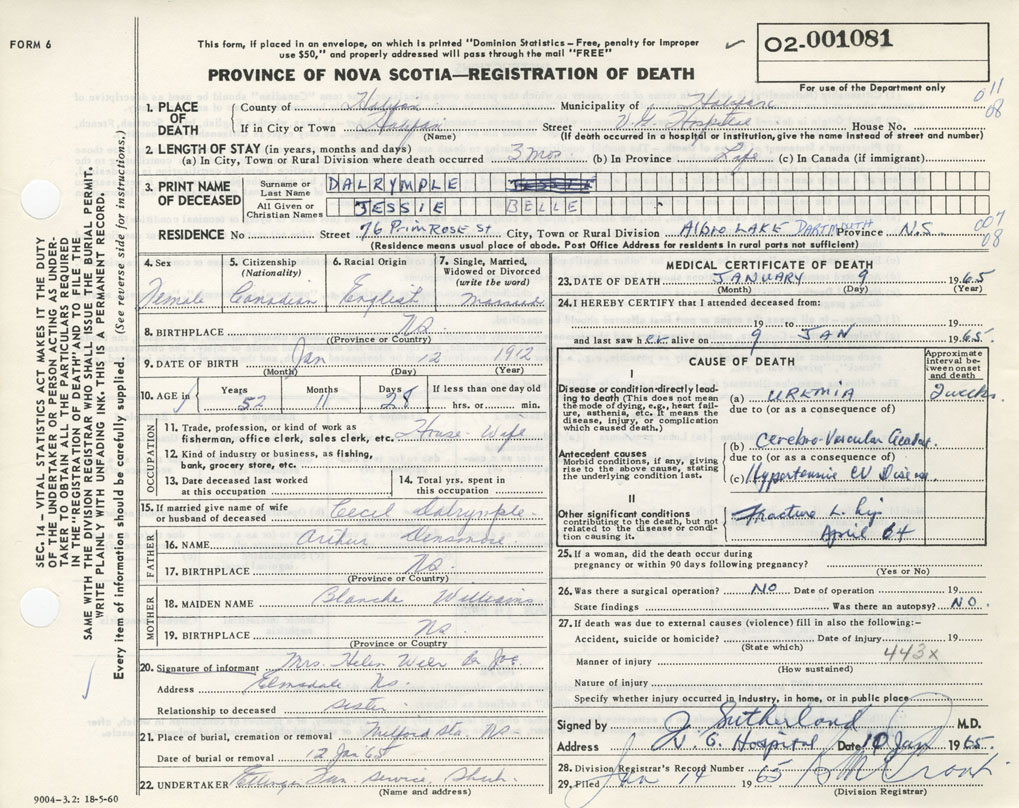 FORM 6
This form, if placed in an envelope, on which is printed "Dominion Statistics – Free, penalty for improper
use $50," and properly addressed will pass through the mail "FREE"
02-001081
PROVINCE OF NOVA SCOTIA—REGISTRATION OF DEATH
For use of the Department only
011
08
1. PLACE OF DEATH
County of Halifax Municipality of Halifax
If in City or Town Halifax Street V.G. Hospital House No.
(Name) (If death occurred in a hospital or institution, give the name instead of street and number)
2. LENGTH OF STAY (in years, months and days)
(a) In City, Town or Rural Division where death occurred 3 mos. (b) In Province Life (c) In Canada (if immigrant)
3. PRINT NAME OF DECEASED
Surname or Last Name DALRYMPLE
All Given or Christian Names JESSIE BELLE
RESIDENCE No Street 76 PRIMROSE ST City, Town or Rural Division ALBRO LAKE DARTMOUTH Province N.S.
007
08
(Residence means usual place of abode. Post Office Address for residents in rural parts not sufficient)
SEC. 14 – VITAL STATISTICS ACT MAKES IT THE DUTY
OF THE UNDERTAKER OR PERSON ACTING AS UNDER-
TAKER TO OBTAIN ALL THE PARTICULARS REQUIRED
IN THE "REGISTRATION OF DEATH" AND TO FILE THE
SAME WITH THE DIVISION REGISTRAR WHO SHALL ISSUE THE BURIAL PERMIT.
WRITE PLAINLY WITH UNFADING INK. THIS IS A PERMANENT RECORD.
Every item of information should be carefully supplied. (See reverse side for instructions.)
4. Sex Female
5. Citizenship (Nationality) Canadian
6. Racial Origin English
7. Single, Married, Widowed or Divorced (write the word) Married
8. BIRTHPLACE NS
((Province or Country)
9. DATE OF BIRTH Jan 12 1912
(Month) (Day) (Year)
10. AGE in Years 52 Months 11 Days 28 If less than one day old hrs. or min.
OCCUPATION
11. Trade, profession, or kind of work as
fisherman, office clerk, sales clerk, etc. House-Wife
12. Kind of industry or business, as fishing,
bank, grocery store, etc.
13. Date deceased last worked at this occupation
14. Total yrs. spent in this occupation
15. If married give name of wife
or husband of deceased Cecil Dalrymple
FATHER
16. NAME Arthur Densmore
17. BIRTHPLACE NS
(Province or Country)
MOTHER
18. MAIDEN NAME Blanche Williams
19. BIRTHPLACE NS
(Province or Country)
20. Signature of informant Mrs. Helen
Address Elmsdale NS.
Relationship to deceased sister
21. Place of burial, cremation or removal Milford Sta. NS
Date of burial or removal 12 Jan 65
22. UNDERTAKER Ettinger Fun. Service, Shub.
(Name and address)
9004-3.2: 18-5-60
MEDICAL CERTIFICATE OF DEATH
23. DATE OF DEATH JANUARY 9 1965
(Month) (Day) (Year)
24. I HEREBY CERTIFY that I attended deceased from:
19 to 19
and last saw h ER alive on 9 JAN 1965.
CAUSE OF DEATH
Approximate interval between onset and death
I
Disease or condition directly lead-
ing to death (This does not mean
the mode of dying, e.g., heart fail-
ure, asthenia, etc. It means the
disease, injury, or complication
which caused death.)
(a) UREMIA 2 weeks.
due to (or as a consequence of)
Antecedent causes
Morbid conditions, if any, giving
rise to the above cause, stating
the underlying condition last.
(b) Cerebro-Vascular Accident.
due to (or as a consequence of)
(c) Hypertensive CV Disease
II
Other significant conditions
contributing to the death, but not
related to the disease or condi-
tion causing it.
Fracture L. hip
April 64
25. If a woman, did the death occur during
pregnancy or within 90 days following pregnancy?
(Yes or No)
26. Was there a surgical operation? NO Date of operation 19
State findings Was there an autopsy? NO.
27. If death was due to external causes (violence) fill in also the following:–
Accident, suicide or homicide? Date of injury 19
(State which) 443x
Manner of injury
(How sustained)
Nature of injury
Specify whether injury occurred in industry, in home, or in public place
Signed by J Sutherland M.D.
Address V. G. Hospital Date 10 Jan 1965
28. Division Registrar's Record Number
29. Filed Jan 14 1965
(Division Registrar)